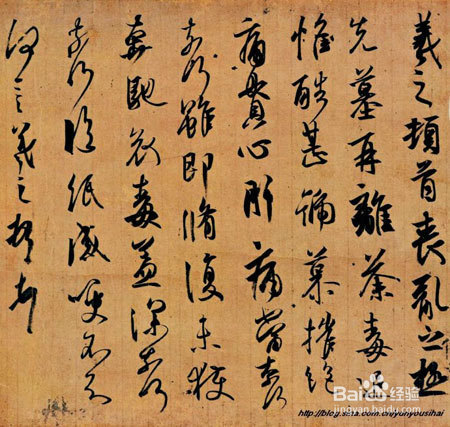 羲之頓首喪亂之極
先墓再離荼毒追
惟酷甚號慕摧絕
痛貫心肝痛當奈何
奈何雖即脩復未獲
奔馳哀毒益深奈何
奈何臨紙感哽不知
何言羲之頓首
Baidu 经验
jingyan.baidu.com
http://blog.sina.com.cn/yunyousihai